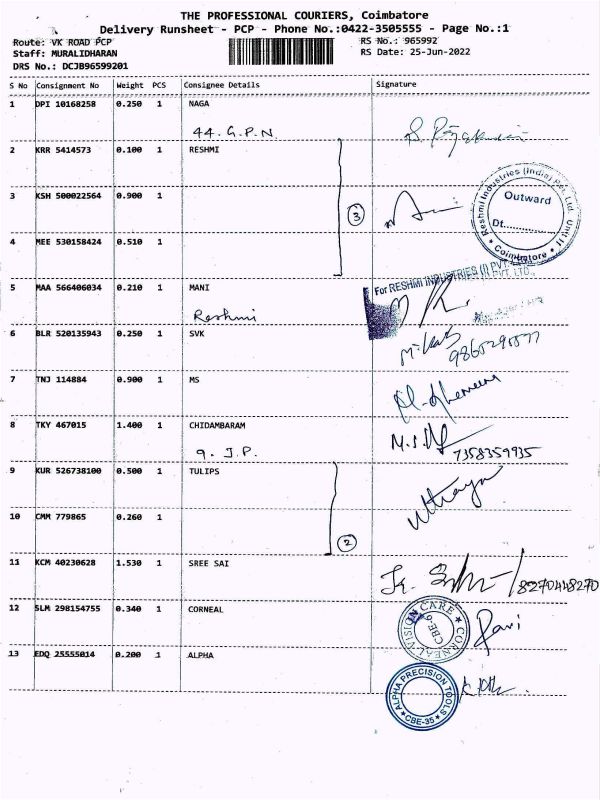 THE PROFESSIONAL COURIERS, Coimbatore
Delivery Runsheet - PCP - Phone No.:0422-3505555 - Page No.:1
Route: VK ROAD PCP RS No.: 965992
Staff: MURALIDHARAN RS Date: 25-Jun-2022
DRS No.: DCJB96599201
S No Consignment No Weight PCS Consignee Details Signature
1 DPI 10168258 0.250 1 NAGA
44. G.P.N.
2 KRR 5414573 0.100 1 RESHMI
3 KSH 500022564 0.900 1
3
Reshmi Industries (India) Pvt. Ltd. Unit II
Outward
Dt.............
* Coimbatore *
4 MEE 530158424 0.510 1
For RESHMI INDUSTRIES (I) PVT. LTD.,
5 MAA 566406034 0.210 1 MANI
Reshmi
6 BLR 520135943 0.250 1 SVK
7 TNJ 114884 0.900 1 MS
8 TKY 467015 1.400 1 CHIDAMBARAM
9. J.P. 7358359935
9 KUR 526738100 0.500 1 TULIPS
10 CMM 779865 0.260 1
2
11 KCM 40230628 1.530 1 SREE SAI
8270448270
12 SLM 298154755 0.340 1 CORNEAL
CORNEAL VISION CARE
CBE-6
Ravi
13 EDQ 25555014 0.200 1 ALPHA
ALPHA PRECISION TOOLS
* CBE-35 *